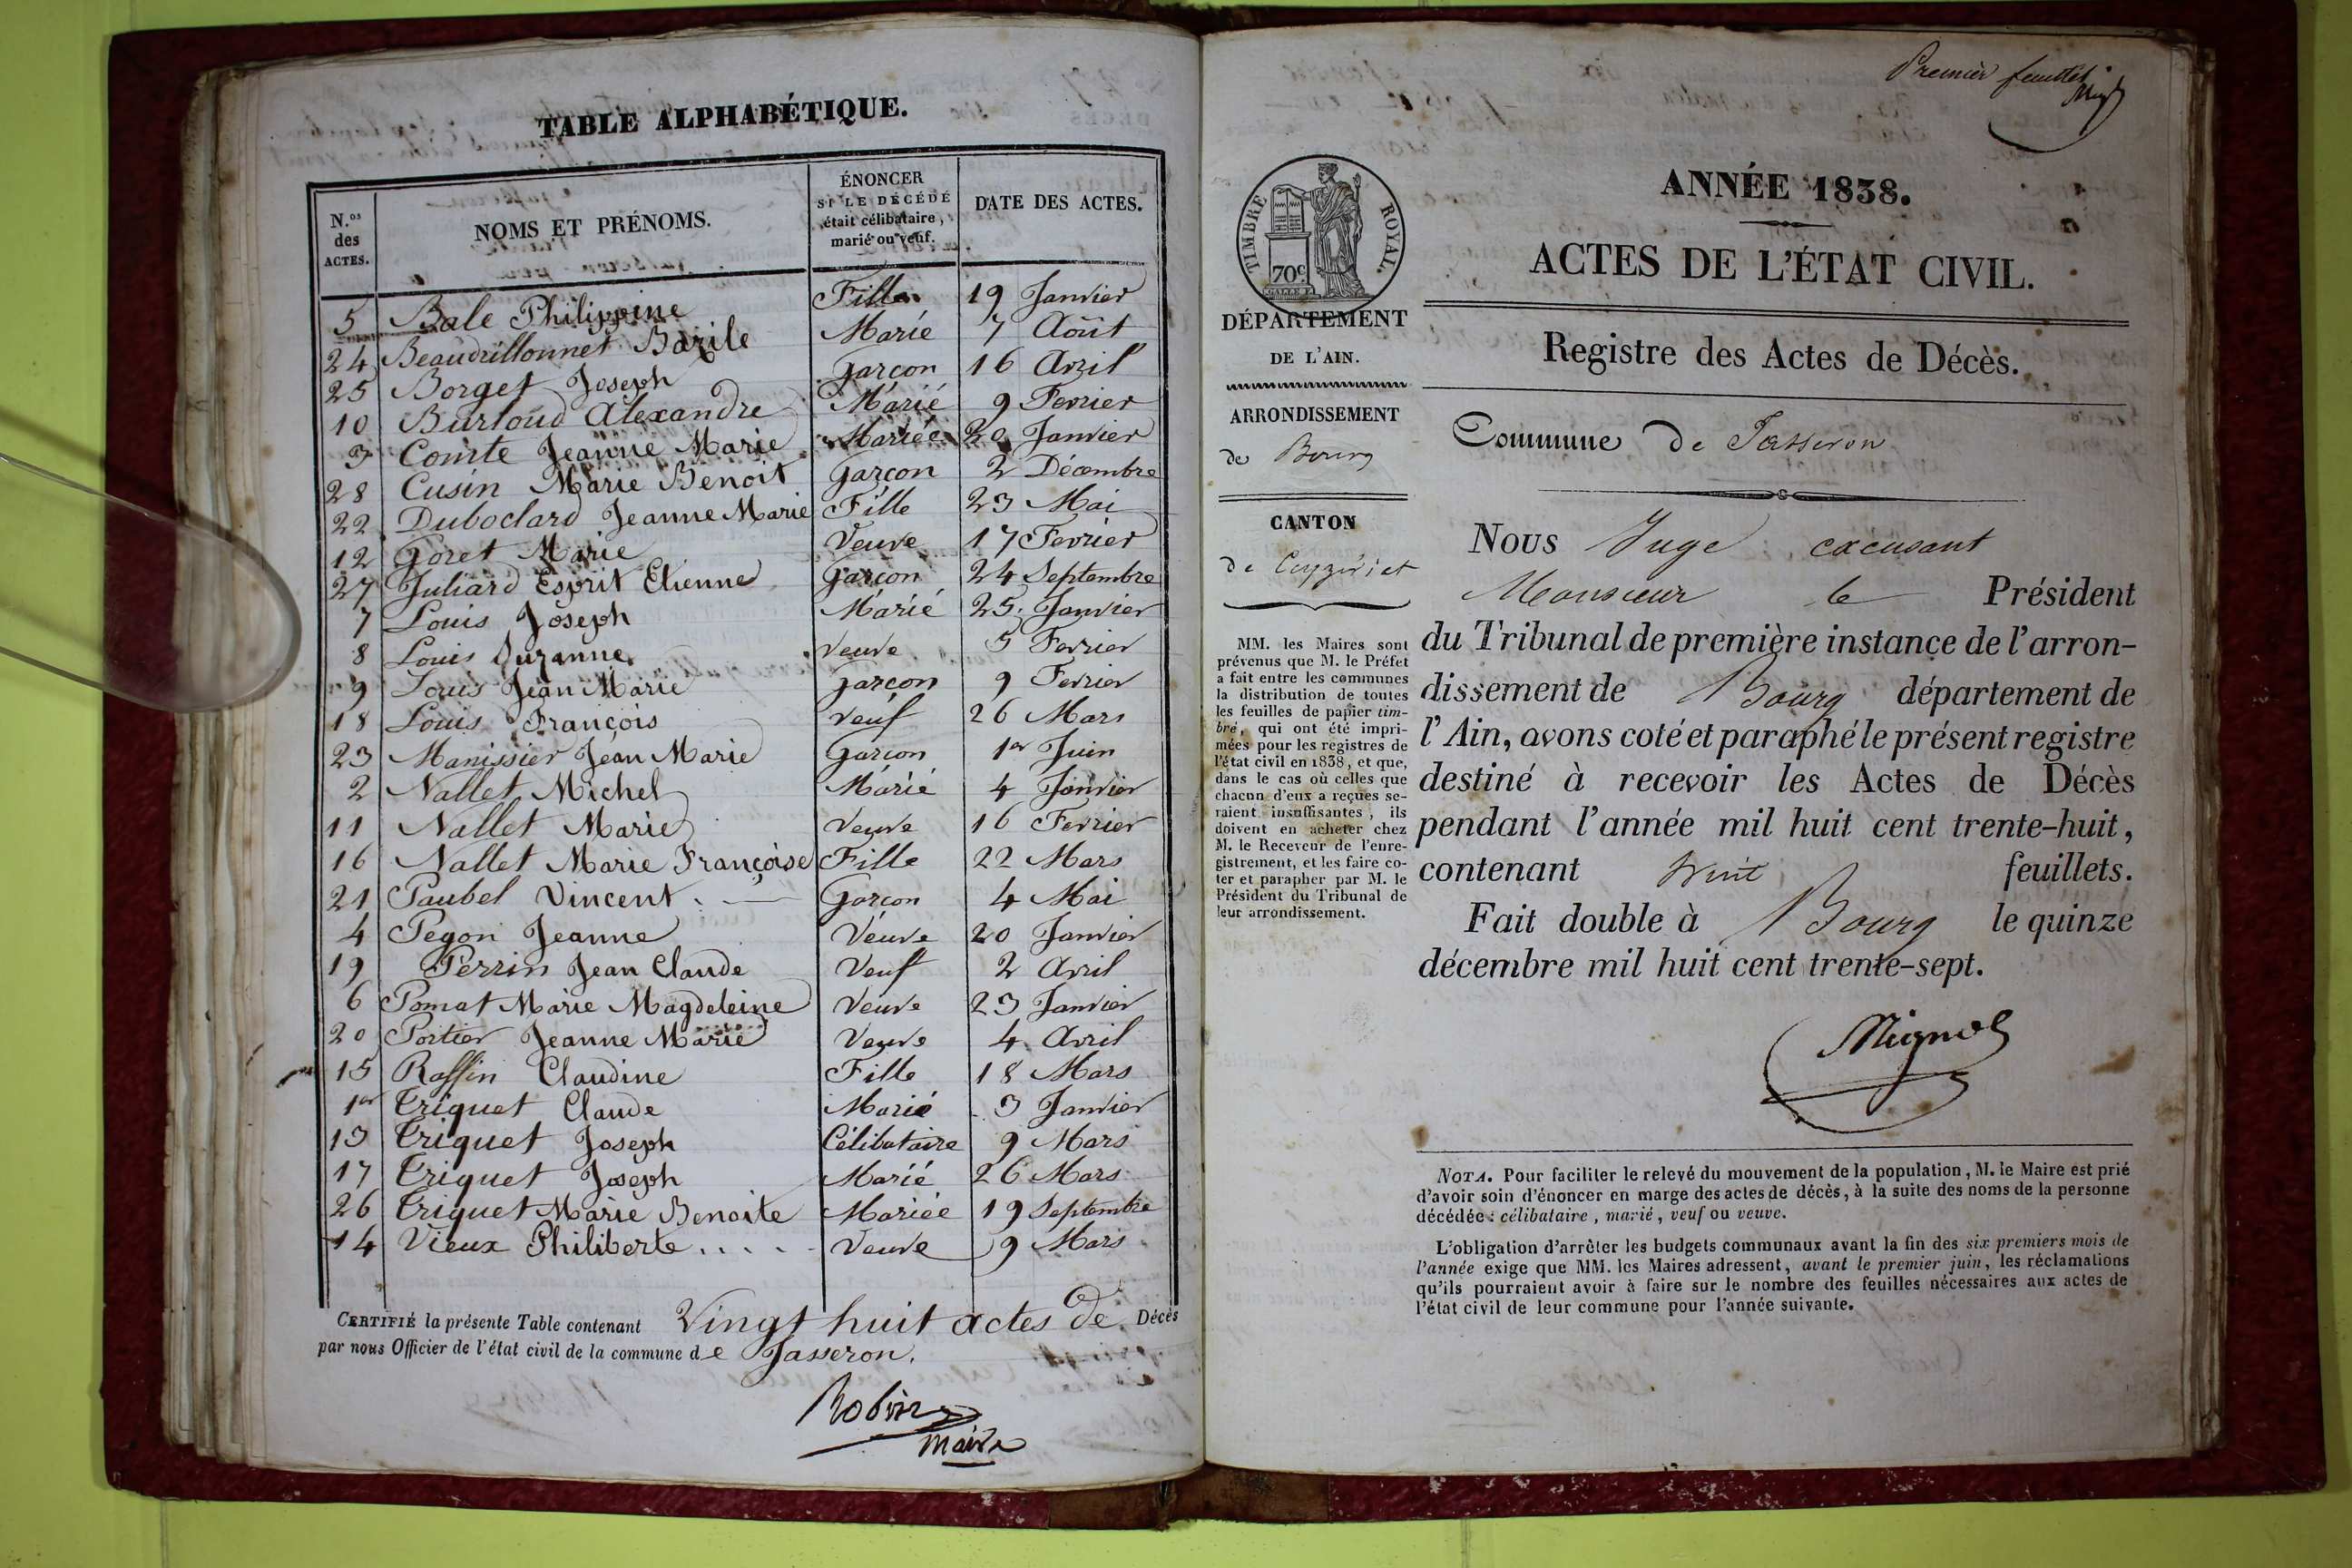 TABLE ALPHABÉTIQUE.
N.os des ACTES.
NOMS ET PRÉNOMS.
ÉNONCER
SI LE DÉCÉDÉ
était célibataire,
marié ou veuf.
DATE DES ACTES.
5 Bale Philippine Fille 19 Janvier
24 Beaudrillonnet Bazile Marié 7 Août
25 Borget Joseph Garçon 16 Avril
10 Burloud Alexandre Marié 9 Fevrier
3 Comte Jeanne Marie Mariée 20 Janvier
28 Cusin Marie Benoit Garçon 2 Décembre
22 Duboclard Jeanne Marie Fille 23 Mai
12 Goret Marie Veuve 17 Fevrier
27 Juliard Esprit Etienne Garçon 24 Septembre
7 Louis Joseph Marié 25 Janvier
8 Louis Suzanne veuve 5 Fevrier
9 Louis Jean Marie garçon 9 Fevrier
18 Louis François veuf 26 Mars
23 Manissier Jean Marie Garçon 1er Juin
2 Nallet Michel Marié 4 Janvier
11 Nallet Marie Veuve 16 Fevrier
16 Nallet Marie Françoise Fille 22 Mars
21 Paubel Vincent Garçon 4 Mai
4 Pegon Jeanne Veuve 20 Janvier
19 Perrin Jean Claude Veuf 2 Avril
6 Pomat Marie Magdeleine Veuve 23 Janvier
20 Portier Jeanne Marie Veuve 4 Avril
15 Raffin Claudine Fille 18 Mars
1er Triquet Claude Marié 3 Janvier
13 Triquet Joseph Célibataire 9 Mars
17 Triquet Joseph Marié 26 Mars
26 Triquet Marie Benoite Mariée 19 Septembre
14 Vieux Philiberte.... Veuve 9 Mars
CERTIFIÉ la présente Table contenant Vingt huit actes de Décès
par nous Officier de l'état civil de la commune de Jasseron.
Robin
maire
Premier feuillet
TIMBRE ROYAL.
70c
DÉPARTEMENT
DE L'AIN.
ARRONDISSEMENT
de Bourg
CANTON
de Ceyzériat
MM. les Maires sont
prévenus que M. le Préfet
a fait entre les communes
la distribution de toutes
les feuilles de papier tim-
bré, qui ont été impri-
mées pour les registres de
l'état civil en 1838, et que,
dans le cas où celles que
chacun d'eux a reçues se-
raient insuffisantes, ils
doivent en acheter chez
M. le Receveur de l'enre-
gistrement, et les faire co-
ter et parapher par M. le
Président du Tribunal de
leur arrondissement.
ANNÉE 1838.
ACTES DE L'ÉTAT CIVIL.
Registre des Actes de Décès.
Commune de Jasseron
Nous Juge excusant
Monsieur le Président
du Tribunal de première instance de l'arron-
dissement de Bourg département de
l'Ain, avons coté et paraphé le présent registre
destiné à recevoir les Actes de Décès
pendant l'année mil huit cent trente-huit,
contenant huit feuillets.
Fait double à Bourg le quinze
décembre mil huit cent trente-sept.
NOTA. Pour faciliter le relevé du mouvement de la population, M. le Maire est prié
d'avoir soin d'énoncer en marge des actes de décès, à la suite des noms de la personne
décédée: célibataire, marié, veuf ou veuve.
L'obligation d'arrêter les budgets communaux avant la fin des six premiers mois de
l'année exige que MM. les Maires adressent, avant le premier juin, les réclamations
qu'ils pourraient avoir à faire sur le nombre des feuilles nécessaires aux actes de
l'état civil de leur commune pour l'année suivante.